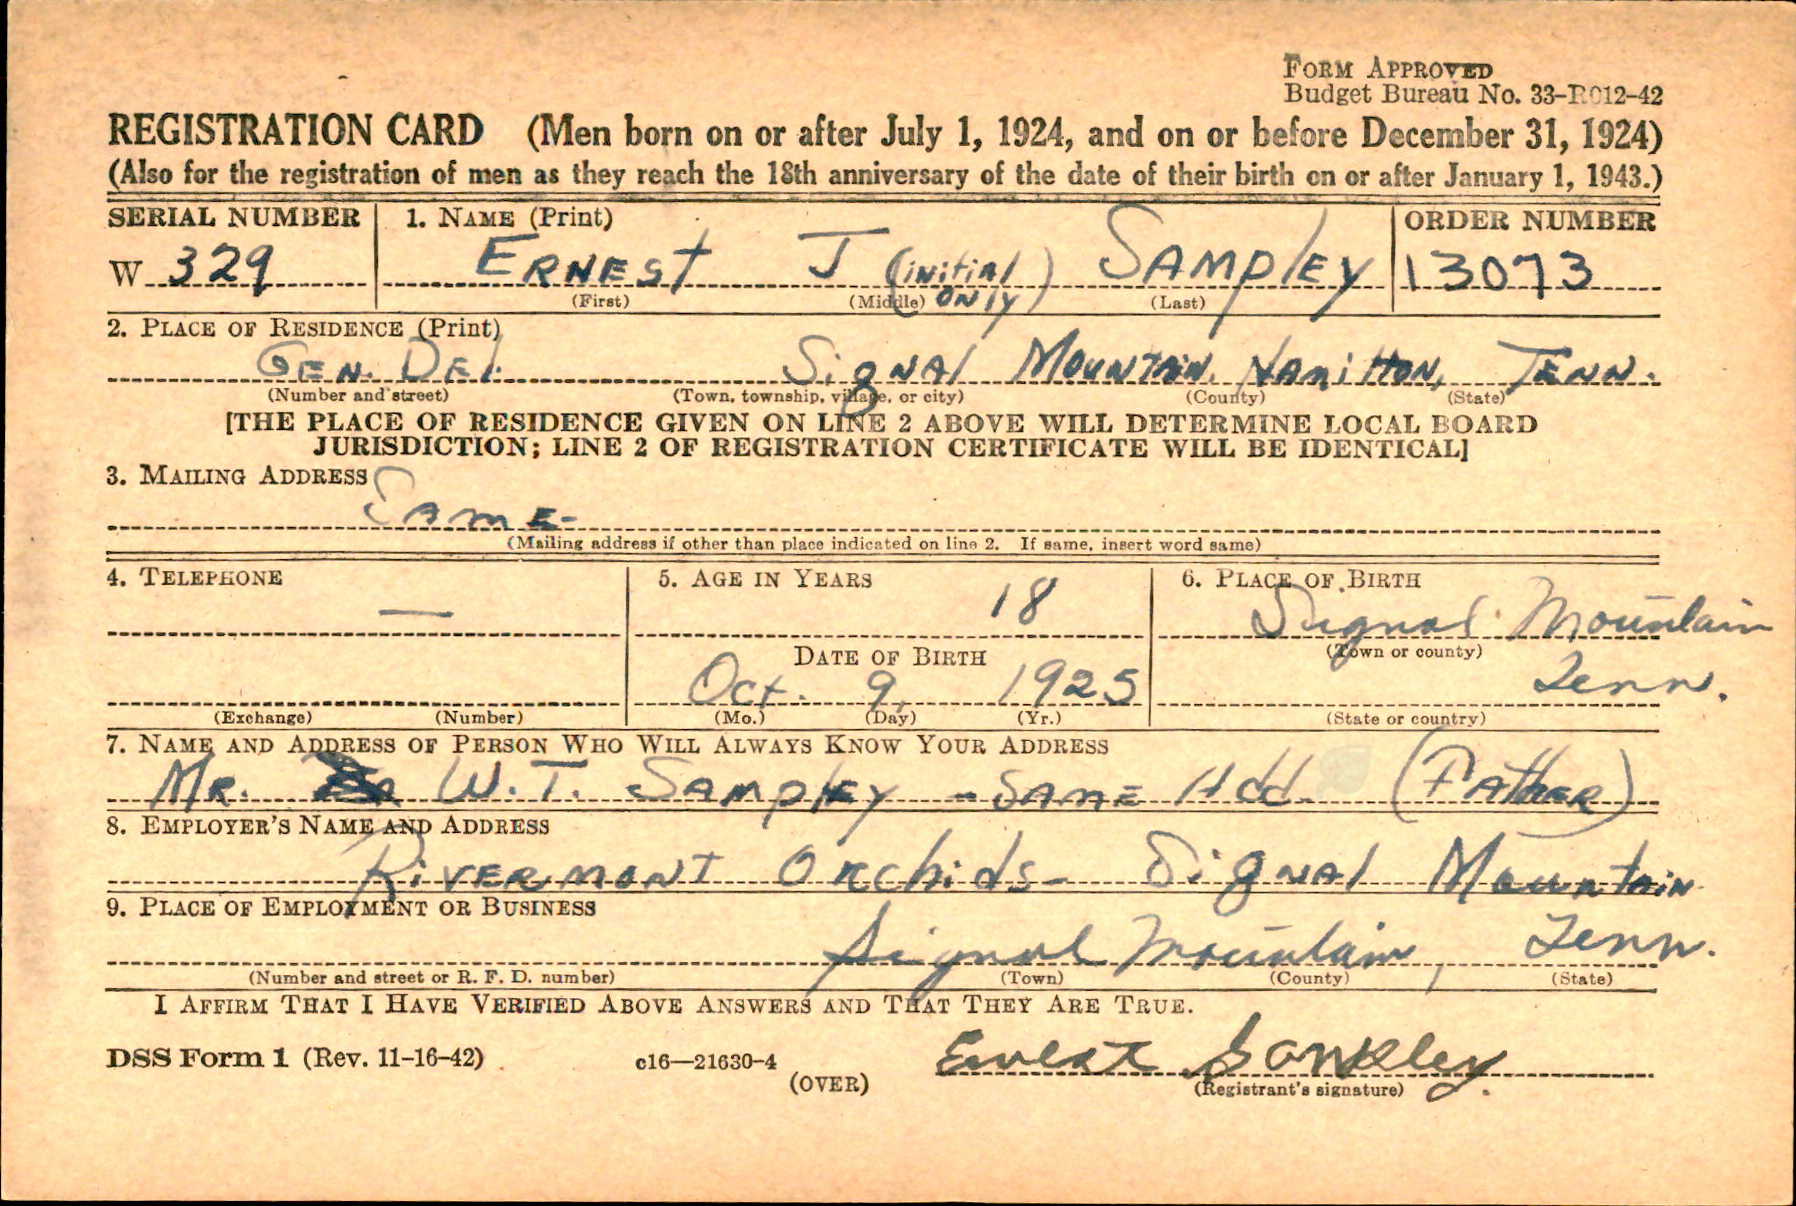 FORM APPROVED
Budget Bureau No. 33-R012-42
REGISTRATION CARD (Men born on or after July 1, 1924, and on or before December 31, 1924)
(Also for the registration of men as they reach the 18th anniversary of the date of their birth on or after January 1, 1943.)
SERIAL NUMBER 1. NAME (Print) ORDER NUMBER
W 329 ERNEST J (initial only) SAMPLEY 13073
(First) (Middle) (Last)
2. PLACE OF RESIDENCE (Print)
GEN. DEL. Signal Mountain, Hamilton, TENN.
(Number and street) (Town, township, village, or city) (County) (State)
[THE PLACE OF RESIDENCE GIVEN ON LINE 2 ABOVE WILL DETERMINE LOCAL BOARD
JURISDICTION; LINE 2 OF REGISTRATION CERTIFICATE WILL BE IDENTICAL]
3. MAILING ADDRESS
SAME-
(Mailing address if other than place indicated on line 2. If same, insert word same)
4. TELEPHONE 5. AGE IN YEARS 6. PLACE OF BIRTH
— 18 Signal Mountain
(Town or county)
DATE OF BIRTH
Oct. 9, 1925 Tenn.
(Exchange) (Number) (Mo.) (Day) (Yr.) (State or country)
7. NAME AND ADDRESS OF PERSON WHO WILL ALWAYS KNOW YOUR ADDRESS
MR. W.T. SAMPLEY - SAME Add. (FATHER)
8. EMPLOYER'S NAME AND ADDRESS
RIVERMONT Orchids - Signal Mountain
9. PLACE OF EMPLOYMENT OR BUSINESS
Signal Mountain, Tenn.
(Number and street or R. F. D. number) (Town) (County) (State)
I AFFIRM THAT I HAVE VERIFIED ABOVE ANSWERS AND THAT THEY ARE TRUE.
DSS Form 1 (Rev. 11-16-42) c16—21630-4 Ernest Sampley.
(OVER) (Registrant's signature)